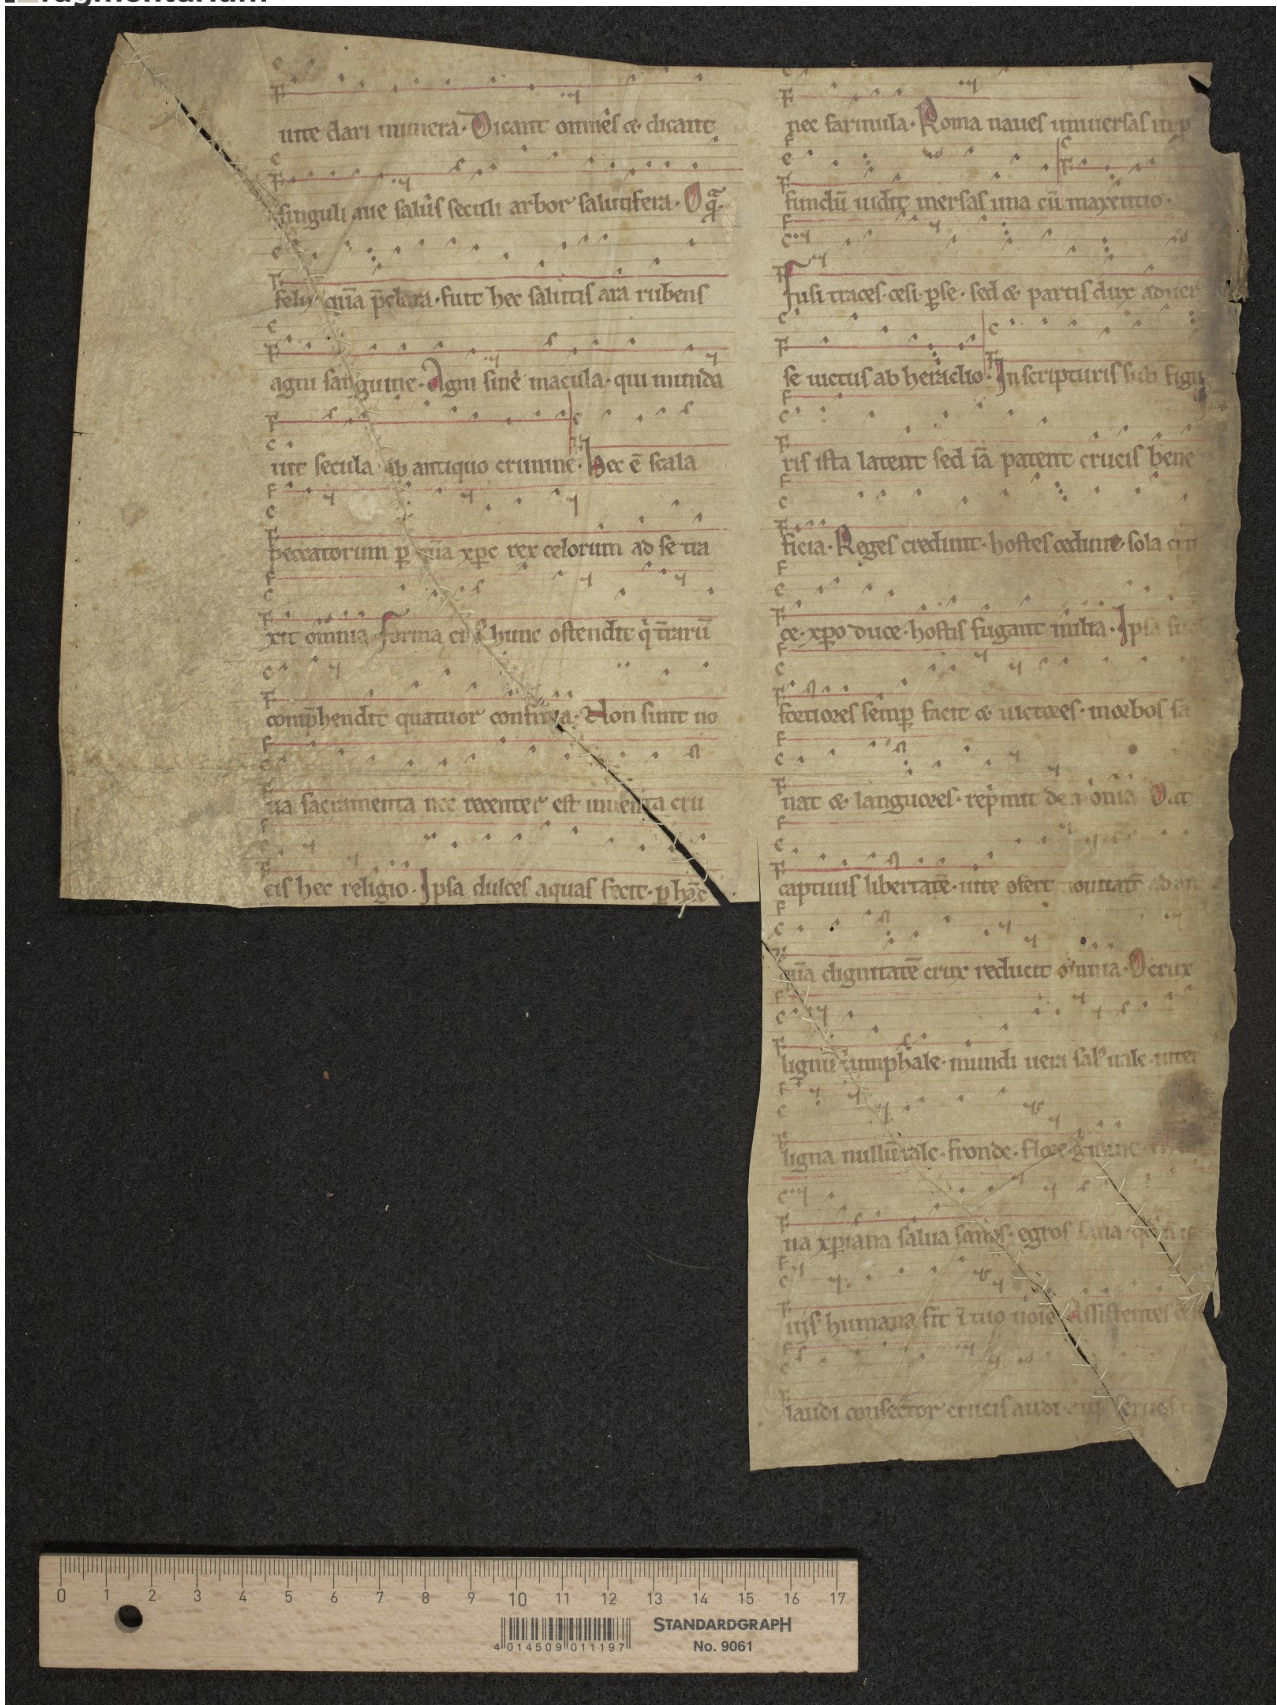 uite dari munera. Dicant omnes & dicant
singuli aue salus seculi arbor salutifera. O qͣ
felix quā p̄clara fuit hec salutis ara rubens
agni sanguine. Agni sine macula. qui munda
uit secula ab antiquo crimine. Hec ē scala
peccatorum ꝑ quā xp̄c rex celorum ad se tra
xit omnia forma hunc ostendit
comp̄hendit quatuor confinia. Non sunt no
ua sacramenta nec recenter est inuenta cru
cis hec religio. Ipsa dulces aquas fecit. ꝑ hāc
nec farinula. Roma naues uniuersas in ꝓ
fundū uidit mersas una cū maxentio.
Fusi traces cesi ꝑse. sed & partis dux aduer
se uictus ab heraclio. In scripturis sub figu
ris ista latent sed iā patent crucis bene
ficia. Reges credunt. hostes cedunt sola cru
ce. xp̄o duce. hostis fugant milia. Ipsa su
fortiores semꝑ facit & uictores. morbos sa
nat & languores. rep̄mit demonia Dat
captiuis libertatē. uite ofert nouitatē ad
quā dignitatē crux reducit omnia. O crux
lignū triumphale. mundi uera salꝰ uale. inter
ligna nullū tale. fronde. flore. germine
na xp̄iana salua sanos. egros sana. qd n̄
uis humana fit ī tuo noīe Assistentes
laudi consecrator crucis audi seruos
STANDARDGRAPH
No. 9061
0 1 2 3 4 5 6 7 8 9 10 11 12 13 14 15 16 17
4 014509 011197